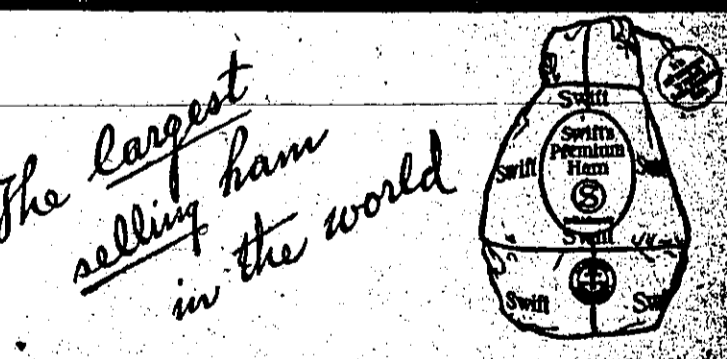 The largest
selling ham
in the world
Swift
Swift's
Premium
Ham
Swift
S
Swift
Swift